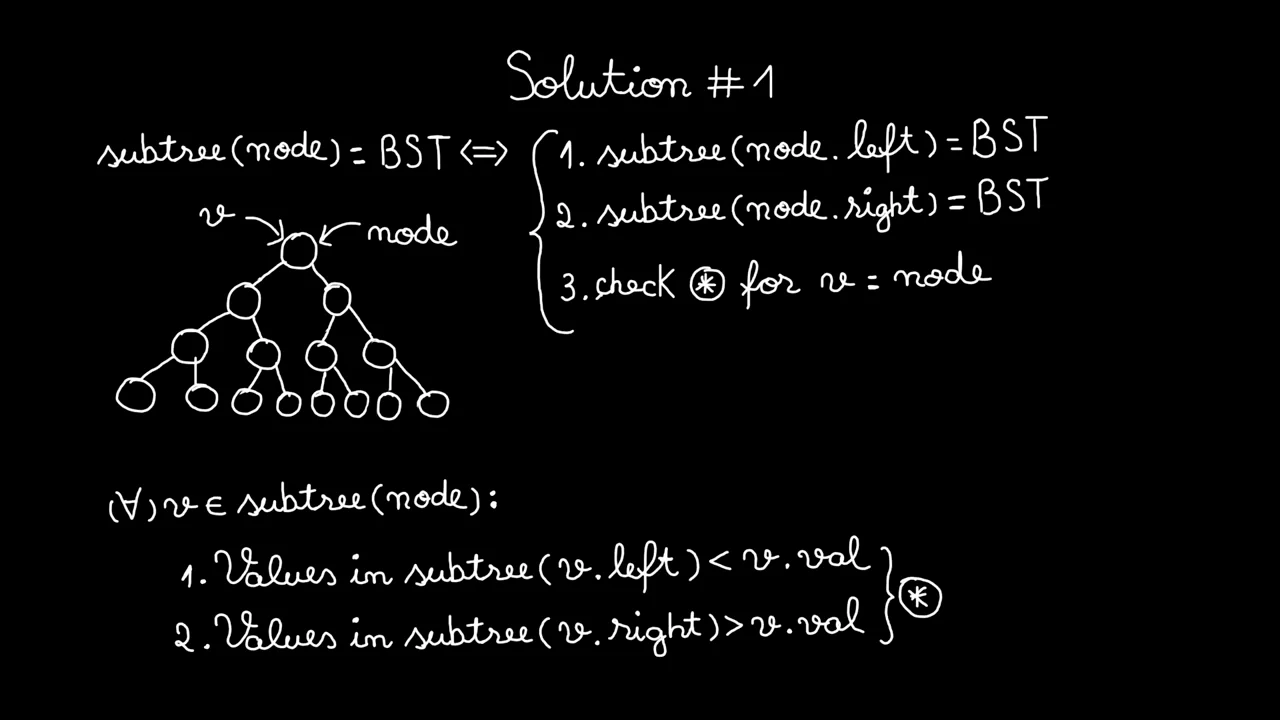 Solution #1
subtree(node) = BST <=>
1. subtree(node.left) = BST
2. subtree(node.right) = BST
3. check ⊛ for v = node
v
node
(∀) v ∈ subtree(node):
1. Values in subtree(v.left) < v.val
2. Values in subtree(v.right) > v.val
⊛